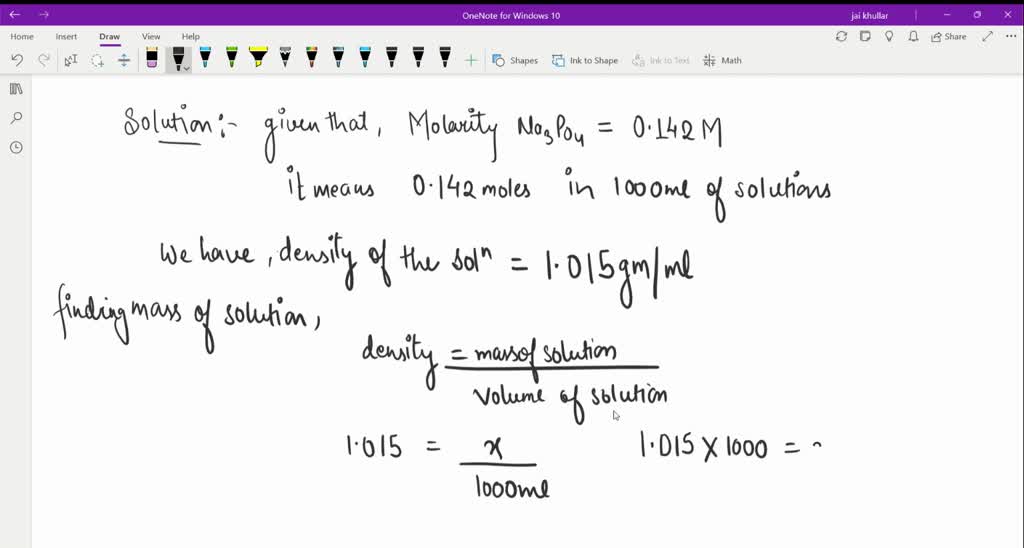 OneNote for Windows 10
jai khullar
Home Insert Draw View Help
Share
Shapes Ink to Shape Ink to Text Math
Solution:- given that, Molarity Na3Po4 = 0.142 M
it means 0.142 moles in 1000ml of solutions
We have, density of the solⁿ = 1.015gm/ml
finding mass of solution,
density = mass of solution
volume of solution
1.015 = x 1.015 X 1000 =
1000ml